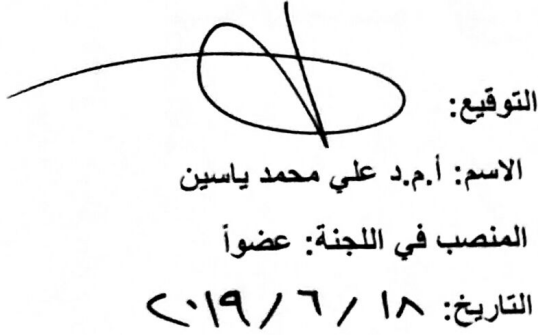 التوقيع:
الاسم: أ.م.د علي محمد ياسين
المنصب في اللجنة: عضواً
التاريخ: ١٨ / ٦ / ٢٠١٩